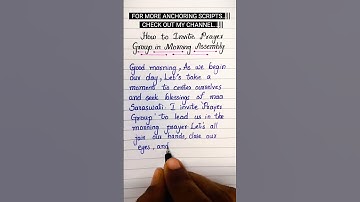 FOR MORE ANCHORING SCRIPTS
CHECK OUT MY CHANNEL
How to Invite Prayer
Group in Morning Assembly
Good morning, As we begin
our day, Let's take a
moment to center ourselves
and seek blessings of maa
Saraswati. I invite 'Prayer
Group' to lead us in the
morning prayer Let's all
join our hands, close our
eyes, and